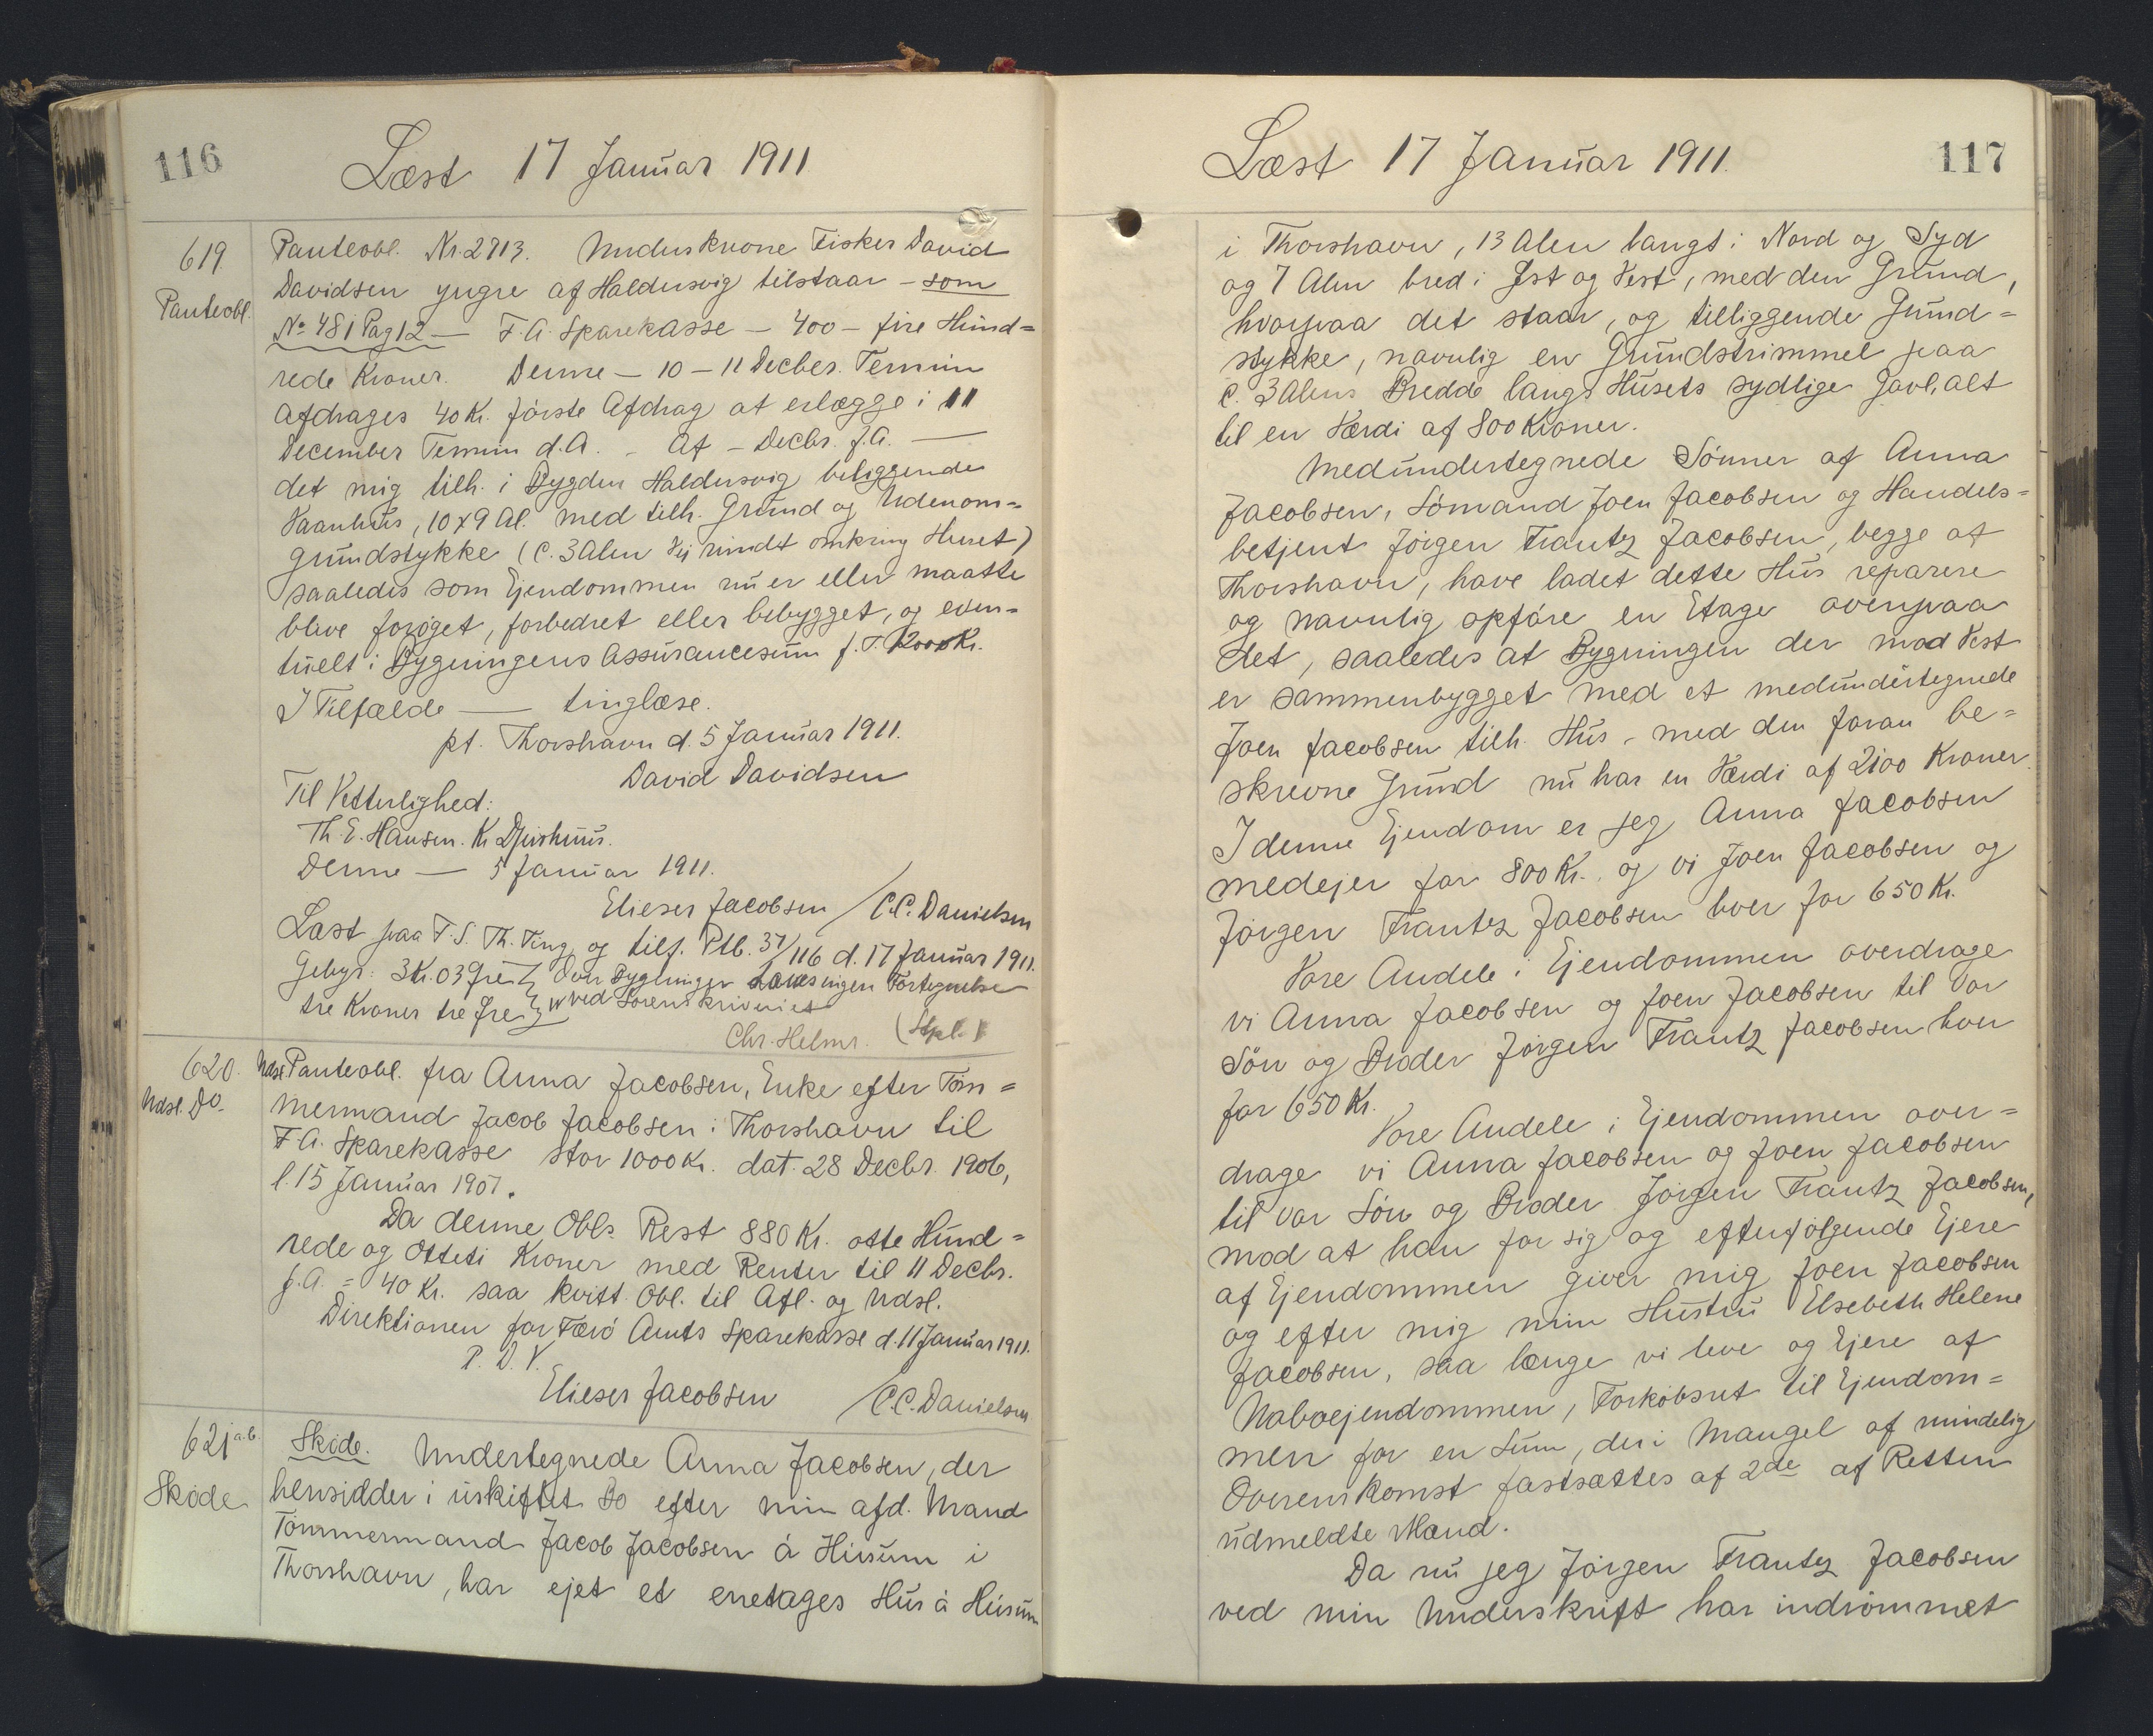 116
Læst 17 Januar 1911
619.
Panteobl.
Panteobl. Nr. 2713. Underskrevne Fisker David
Davidsen yngre af Haldersvig tilstaar - som
No 48 i Pag 12 — F. A. Sparekasse - 400 - fire Hund=
rede Kroner. Denne - 10 - 11 Decber. Termin
afdrages 40 Kr. første Afdrag at erlægge i 11
December Termin d. A. - Af - Decbr. f. A. —
det mig tilh. i Bygden Haldersvig beliggende
Vaanhus, 10 x 9 Al. med tilh. Grund og Udenom=
grundstykke (c. 3 Alen Vej rundt omkring Huset)
saaledes som Ejendommen nu er eller maatte
blive forøget, forbedret eller bebygget, og even=
tuelt i Bygningens Assurancesum f. T. 2000 Kr.
I Tilfælde — tinglæse.
pt. Thorshavn d. 5 Januar 1911.
David Davidsen
Til Vitterlighed:
Th. E. Hansen. K. Djurhuus.
Denne — 5 Januar 1911.
Elieser Jacobsen / C.C. Danielsen
Læst paa F. S. Th. Ting og tilf. Ptb. 37/116 d. 17 Januar 1911.
Gebyr: 3 Kr. 03 Øre } Over Bygninger haves ingen Fortegnelse
tre Kroner tre Øre } ved Sorenskriveriet
Chr. Helms. (Stpl.)
620.
Udsl. Do.
Udsl. Panteobl. fra Anna Jacobsen, Enke efter Tøm=
mermand Jacob Jacobsen i Thorshavn til
F. A. Sparekasse stor 1000 Kr. dat. 28 Decbr. 1906,
l. 15 Januar 1907.
Da denne Obls. Rest 880 Kr. otte Hund=
rede og Otteti Kroner med Renter til 11 Decbr.
f. A. = 40 Kr. saa kvitt. Obl. til Afl. og Udsl.
Direktionen for Færø Amts Sparekasse d. 11 Januar 1911.
P. D. V.
Elieser Jacobsen / C.C. Danielsen
621 a.b.
Skøde
Skøde. Undertegnede Anna Jacobsen, der
hensidder i uskiftet Bo efter min afd. Mand
Tømmermand Jacob Jacobsen á Húsum i
Thorshavn, har ejet et enetages Hus á Húsum
117
Læst 17 Januar 1911.
i Thorshavn, 13 Alen langt i Nord og Syd
og 7 Alen bred i Øst og Vest, med den Grund,
hvorpaa det staar, og tilliggende Grund=
stykke, navnlig en Grundstrimmel paa
c. 3 Alens Bredde langs Husets sydlige Gavl, alt
til en Værdi af 800 Kroner.
Medundertegnede Sønner af Anna
Jacobsen, Sømand Joen Jacobsen og Handels=
betjent Jörgen Frantz Jacobsen, begge af
Thorshavn, have ladet dette Hus reparere
og navnlig opføre en Etage ovenpaa
det, saaledes at Bygningen der mod Vest
er sammenbygget med et medundertegnede
Joen Jacobsen tilh. Hus, med den foran be=
skrevne Grund nu har en Værdi af 2100 Kroner.
I denne Ejendom er jeg Anna Jacobsen
medejer for 800 Kr. og vi Joen Jacobsen og
Jörgen Frantz Jacobsen hver for 650 Kr.
Vore Andele i Ejendommen overdrage
vi Anna Jacobsen og Joen Jacobsen til vor
Søn og Broder Jörgen Frantz Jacobsen hver
for 650 Kr.
Vore Andele i Ejendommen over=
drage vi Anna Jacobsen og Joen Jacobsen
til vor Søn og Broder Jörgen Frantz Jacobsen,
mod at han for sig og efterfølgende Ejere
af Ejendommen giver mig Joen Jacobsen
og efter mig min Hustru Elsebeth Helene
Jacobsen, saa længe vi leve og Ejere af
Naboejendommen, Forkøbsret til Ejendom=
men for en Sum, der i Mangel af mindelig
Overenskomst fastsættes af 2de af Retten
udmeldte Mænd.
Da nu jeg Jörgen Frantz Jacobsen
ved min Underskrift har indrømmet